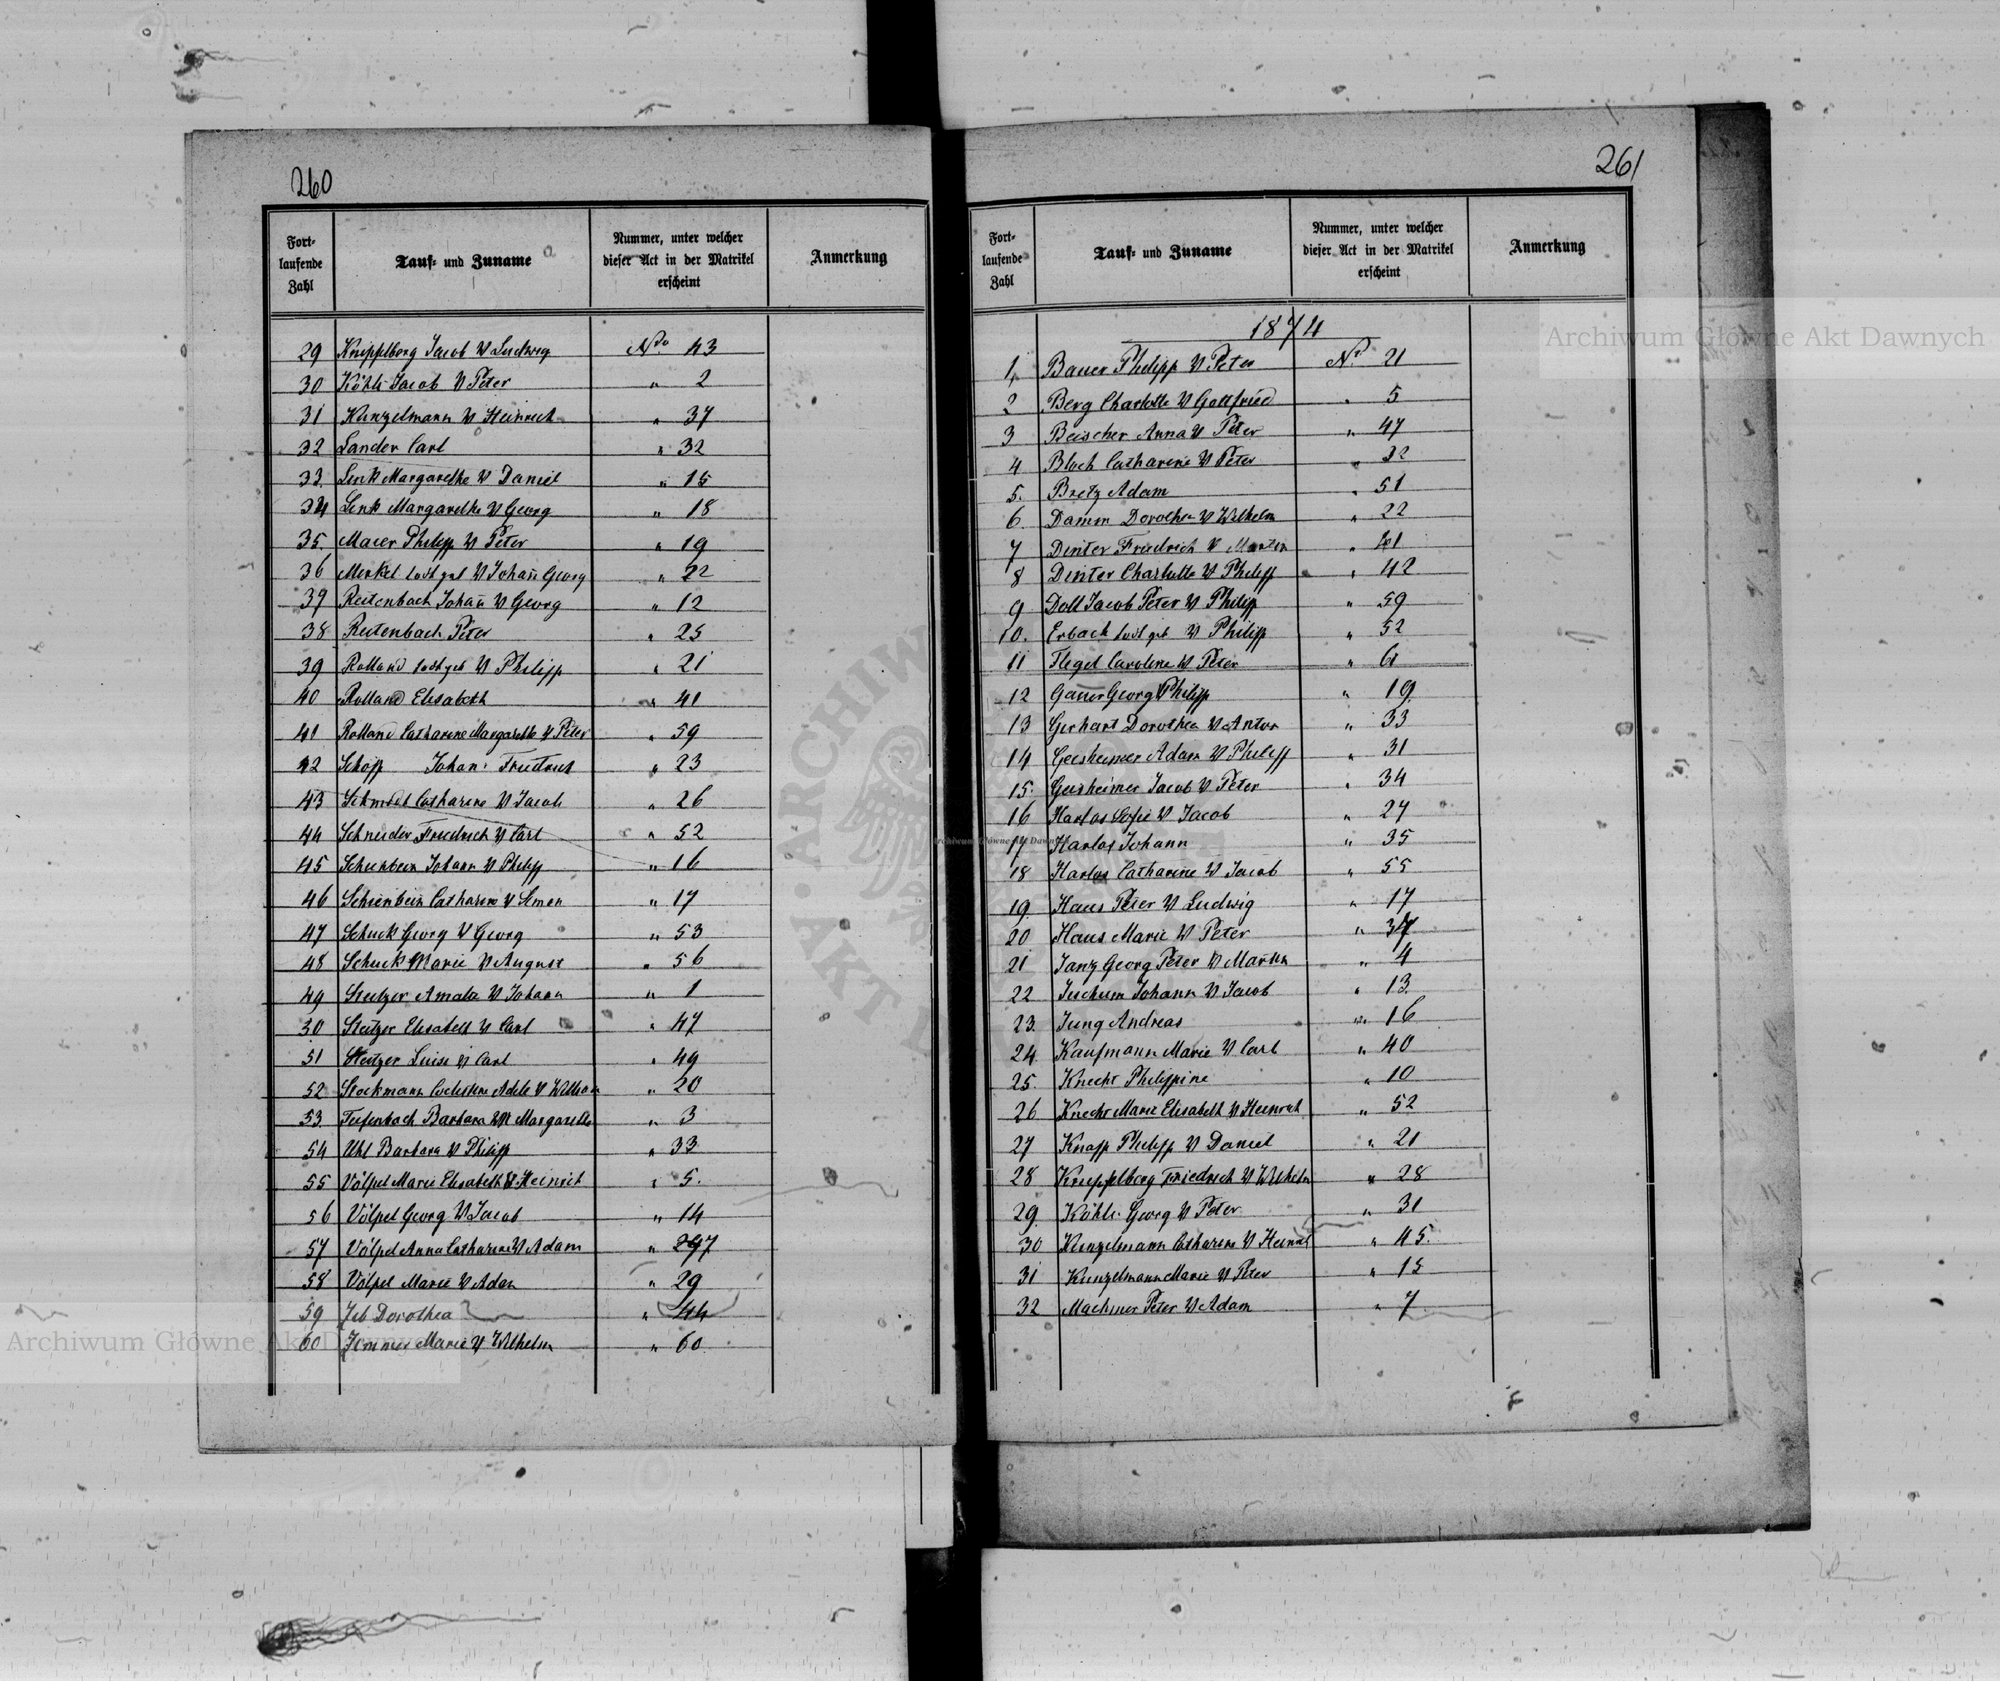 260
Fort-
laufende
Zahl
Tauf- und Zuname
Nummer, unter welcher
dieser Act in der Matrikel
erscheint
Anmerkung
29 Knipfelberg Jacob V Ludwig No 43
30 Köhli Jacob V Peter " 2
31 Kunzelmann V Heinrich " 37
32 Lander Carl " 32
33. Lenk Margarethe V Daniel " 15
34 Lenk Margarethe V Georg " 18
35. Maier Philipp V Peter " 19
36 Merkel todt geb V Johañ Georg " 22
37 Reitenbach Johañ V Georg " 12
38 Reitenbach Peter " 25
39 Rolland todt geb V Philipp " 21
40 Rolland Elisabeth " 41
41 Rolland Catharine Margarethe V Peter " 59
42 Schöpp Johan Friedrich " 23
43 Schmidt Catharine V Jacob " 26
44 Schneider Friedrich V Carl " 52
45 Schienbein Johann V Philipp " 16
46 Schienbein Catharine V Simon " 17
47 Schuck Georg V Georg " 53
48 Schuck Marie V August " 56
49 Steitzer Amalia V Johann " 1
50 Steitzer Elisabeth V Carl " 47
51 Steitzer Luise V Carl " 49
52 Stockmann Adele V Wilhelm " 20
53. Tiefenbach Barbara Margarethe " 3
54 Uhl Barbara V Philipp " 33
55 Völpel Marie Elisabeth V Heinrich " 5.
56 Völpel Georg V Jacob " 14
57 Völpel Anna Catharine V Adam " 297
58 Völpel Marie V Adam " 29
59 Zeb Dorothea " 44
60 Zimmer Marie V Wilhelm " 60
261
Fort-
laufende
Zahl
Tauf- und Zuname
Nummer, unter welcher
dieser Act in der Matrikel
erscheint
Anmerkung
1874
1, Bauer Philipp V Peter No 21
2 Berg Charlotte V Gottfried " 5
3 Beischer Anna V Peter " 47
4 Bloch Catharine V Peter " 32
5. Bretz Adam " 51
6. Damm Dorothea V Wilhelm " 22
7 Dinter Friedrich V Martin " 41
8 Dinter Charlotte V Philipp " 42
9 Doll Jacob Peter V Philipp " 59
10. Erbach todt geb V Philipp " 52
11 Flegel Caroline V Peter " 6
12 Gauer Georg V Philipp " 19
13 Gerhart Dorothea V Anton " 33
14 Geisheimer Adam V Philipp " 31
15. Geisheimer Jacob V Peter " 34
16 Harlos Sofie V Jacob " 27
17 Harlos Johann " 35
18 Harlos Catharine V Jacob " 55
19. Haus Peter V Ludwig " 17
20 Haus Marie V Peter " 37
21 Janz Georg Peter V Martin " 4
22 Jeschum Johann V Jacob " 13
23. Jung Andreas " 16
24. Kaufmann Marie V Carl " 40
25. Knecht Philippine " 10
26 Knecht Marie Elisabeth V Heinrich " 52
27 Knapp Philipp V Daniel " 21
28 Knipfelberg Friedrich V Wilhelm " 28
29. Köhli Georg V Peter " 31
30 Kunzelmann Catharine V Heinrich " 45.
31 Kunzelmann Marie V Peter " 15
32 Machmer Peter V Adam " 7
Archiwum Główne Akt Dawnych
Archiwum Główne Akt Dawnych
Archiwum Główne Akt Dawnych